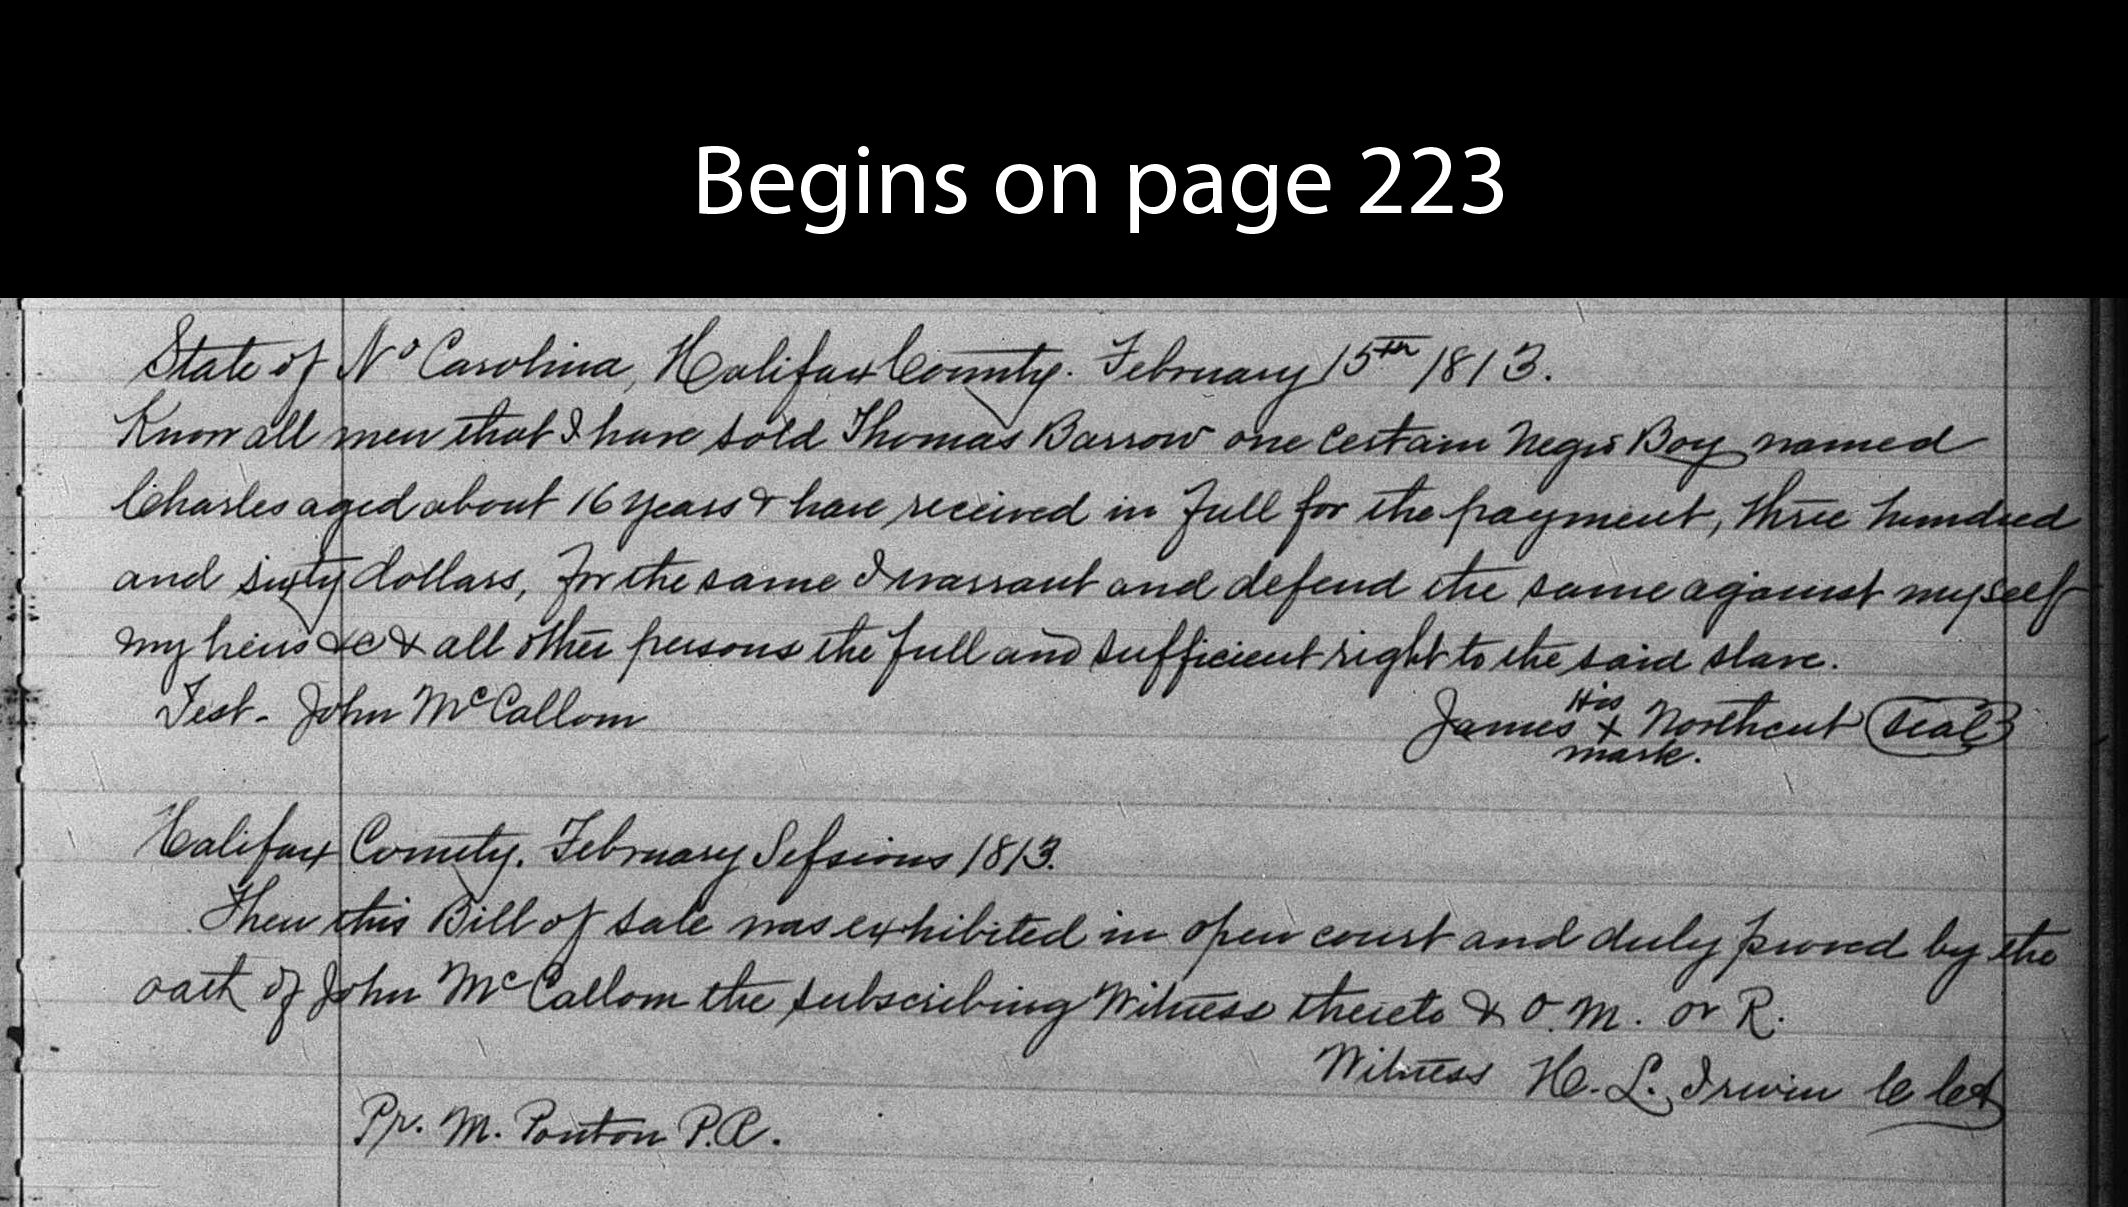 Begins on page 223
State of No Carolina, Halifax County. February 15th 1813.
Know all men that I have sold Thomas Barrow one certain Negro Boy named
Charles aged about 16 years & have received in full for the payment, three hundred
and sixty dollars, for the same I warrant and defend the same against myself
my heirs &c & all other persons the full and sufficient right to the said slave.
Test - John McCallom
His
James + Northcut seal
mark.
Halifax County. February Sessions 1813.
Then this Bill of sale was exhibited in open court and duly proved by the
oath of John McCallom the subscribing Witness thereto & O. M. or R.
Witness H. L. Irwin C Ct
Pr. M. Ponton P.R.